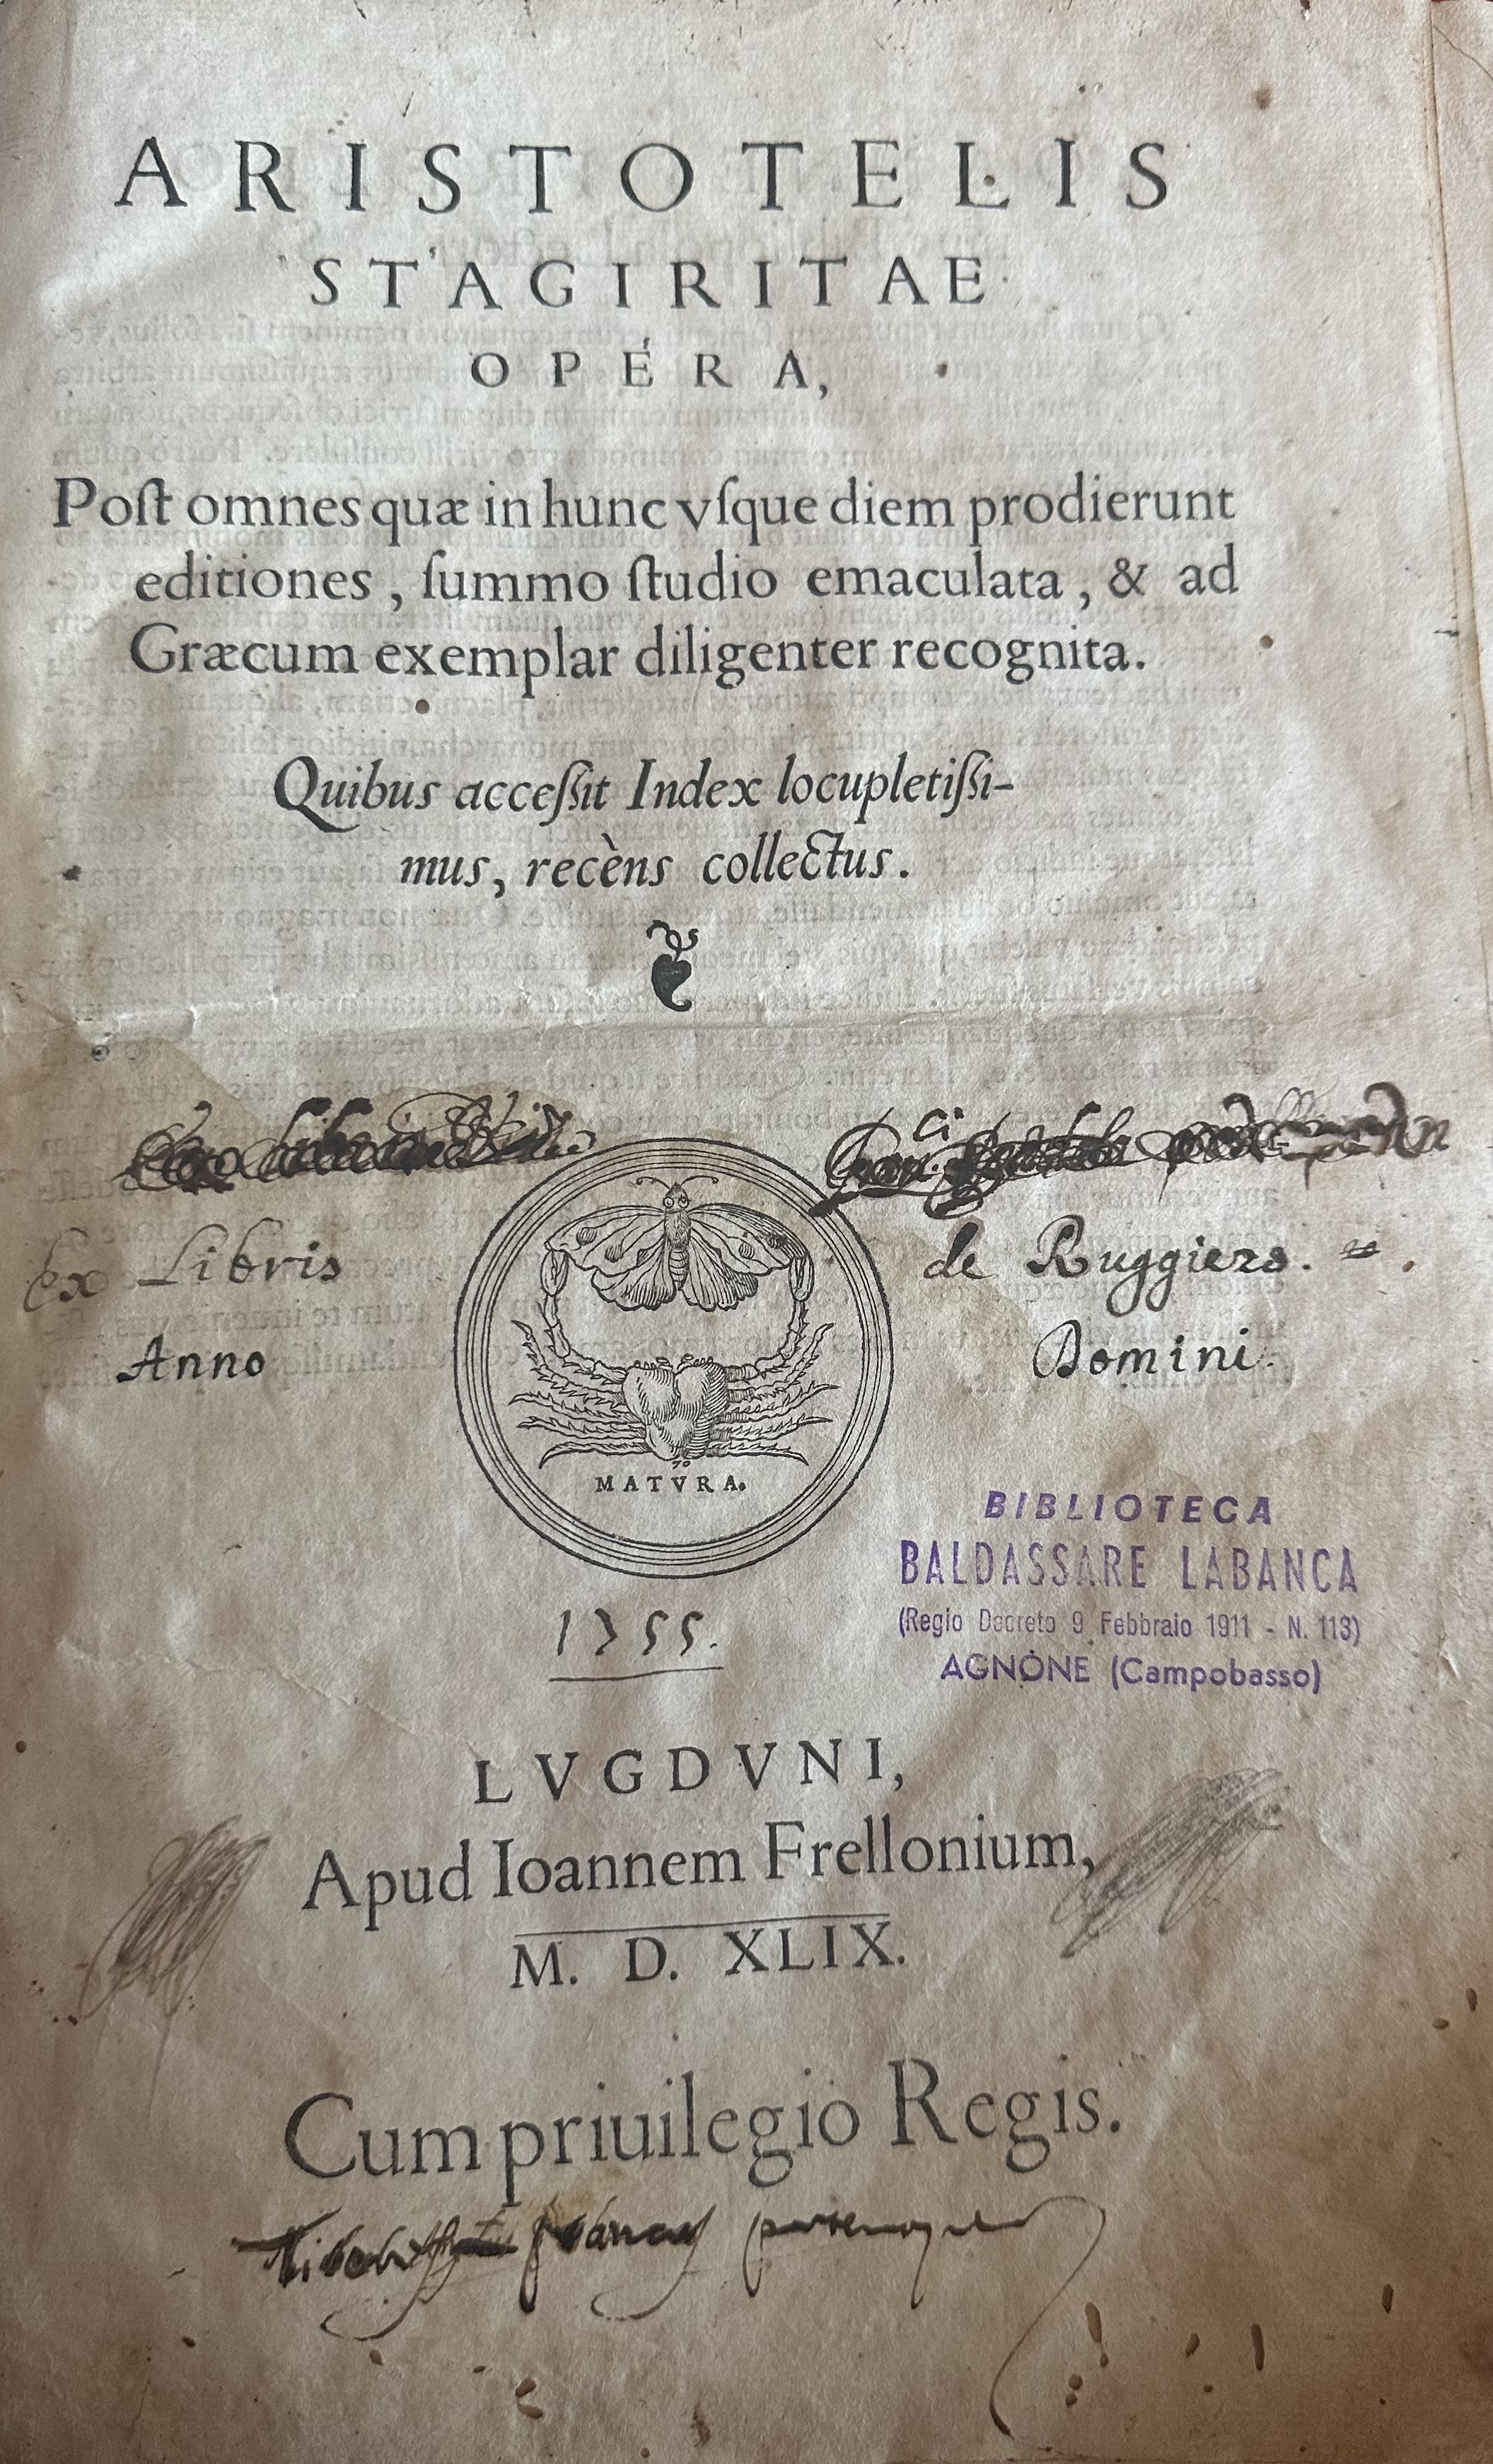 ARISTOTELIS
STAGIRITAE
OPERA,
Poſt omnes quæ in hunc vſque diem prodierunt
editiones, ſummo ſtudio emaculata, & ad
Græcum exemplar diligenter recognita.
Quibus acceſſit Index locupletiſſi-
mus, recèns collectus.
❦
Ex Libris de Ruggiero.
Anno Domini
MATVRA.
1755.
BIBLIOTECA
BALDASSARE LABANCA
(Regio Decreto 9 Febbraio 1911 - N. 113)
AGNONE (Campobasso)
LVGDVNI,
Apud Ioannem Frellonium,
M. D. XLIX.
Cum priuilegio Regis.